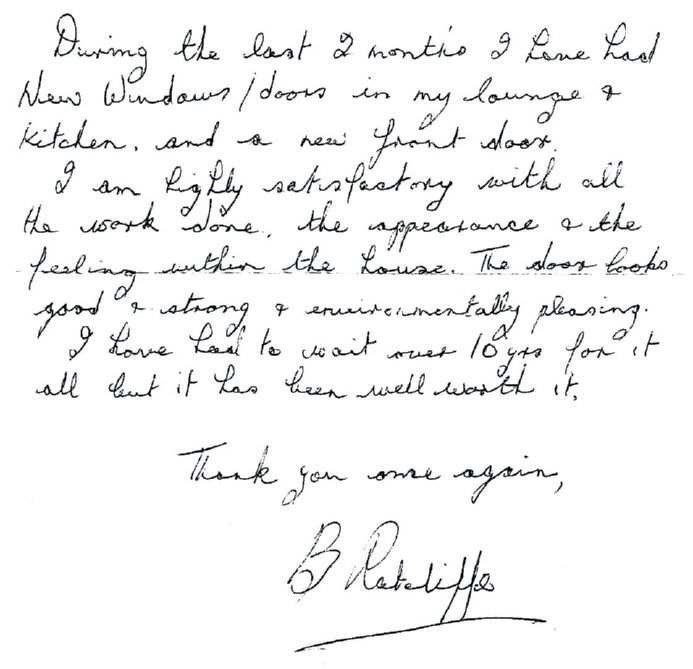 During the last 2 month's I have had
New Windows/doors in my lounge &
Kitchen, and a new front door.
I am highly satisfactory with all
the work done, the appearance & the
feeling within the house. The door looks
good & strong & environmentally pleasing.
I have had to wait over 10 yrs for it
all but it has been well worth it.
Thank you once again,
B Ratcliffe